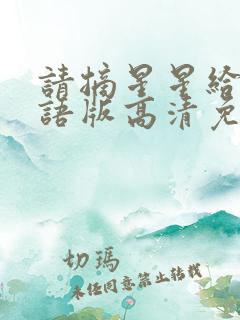 請摘星星給
語版高清免
切瑪
未任同意禁止转载